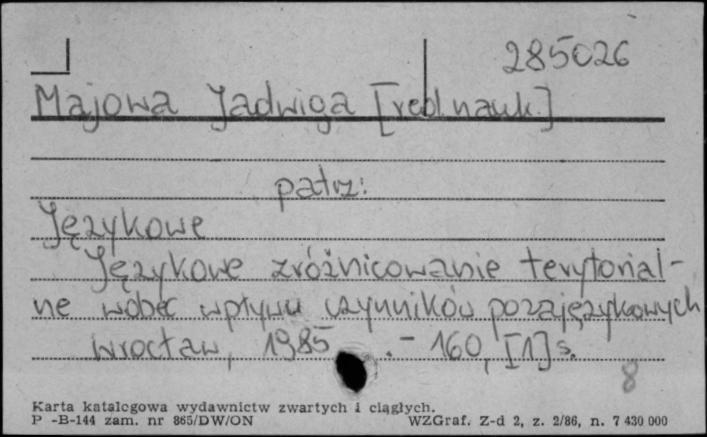 285026
Majowa Jadwiga [red. nauk.]
patrz:
Językowe
Językowe zróżnicowanie terytorial-
ne wobec wpływu czynników pozajęzykowych
Wrocław, 1985 .- 160, [1] s.
8
Karta katalogowa wydawnictw zwartych i ciągłych.
P -B-144 zam. nr 865/DW/ON WZGraf. Z-d 2, z. 2/86, n. 7 430 000